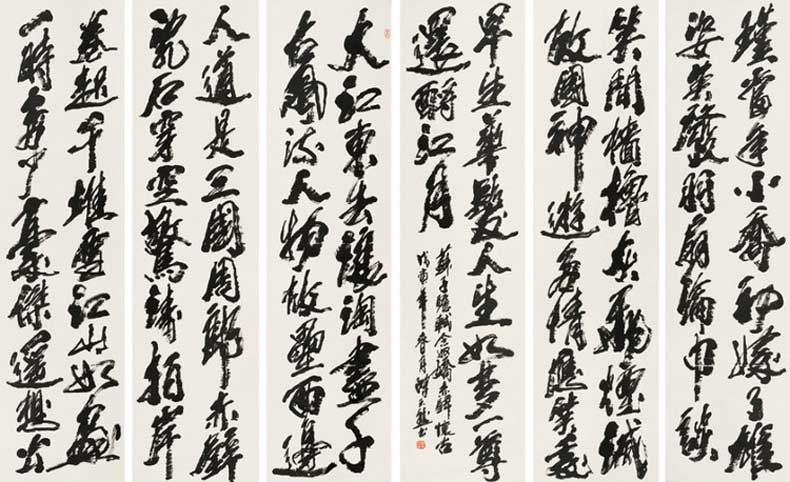 大江東去浪淘盡千
古風流人物故壘西邊
人道是三國周郎赤壁
亂石穿空驚濤拍岸
卷起千堆雪江山如畫
一時多少豪傑遙想公
瑾當年小喬初嫁了雄
姿英發羽扇綸巾談
笑間檣櫓灰飛煙滅
故國神遊多情應笑我
早生華髮人生如夢一尊
還酹江月
蘇子瞻詞念奴嬌赤壁懷古